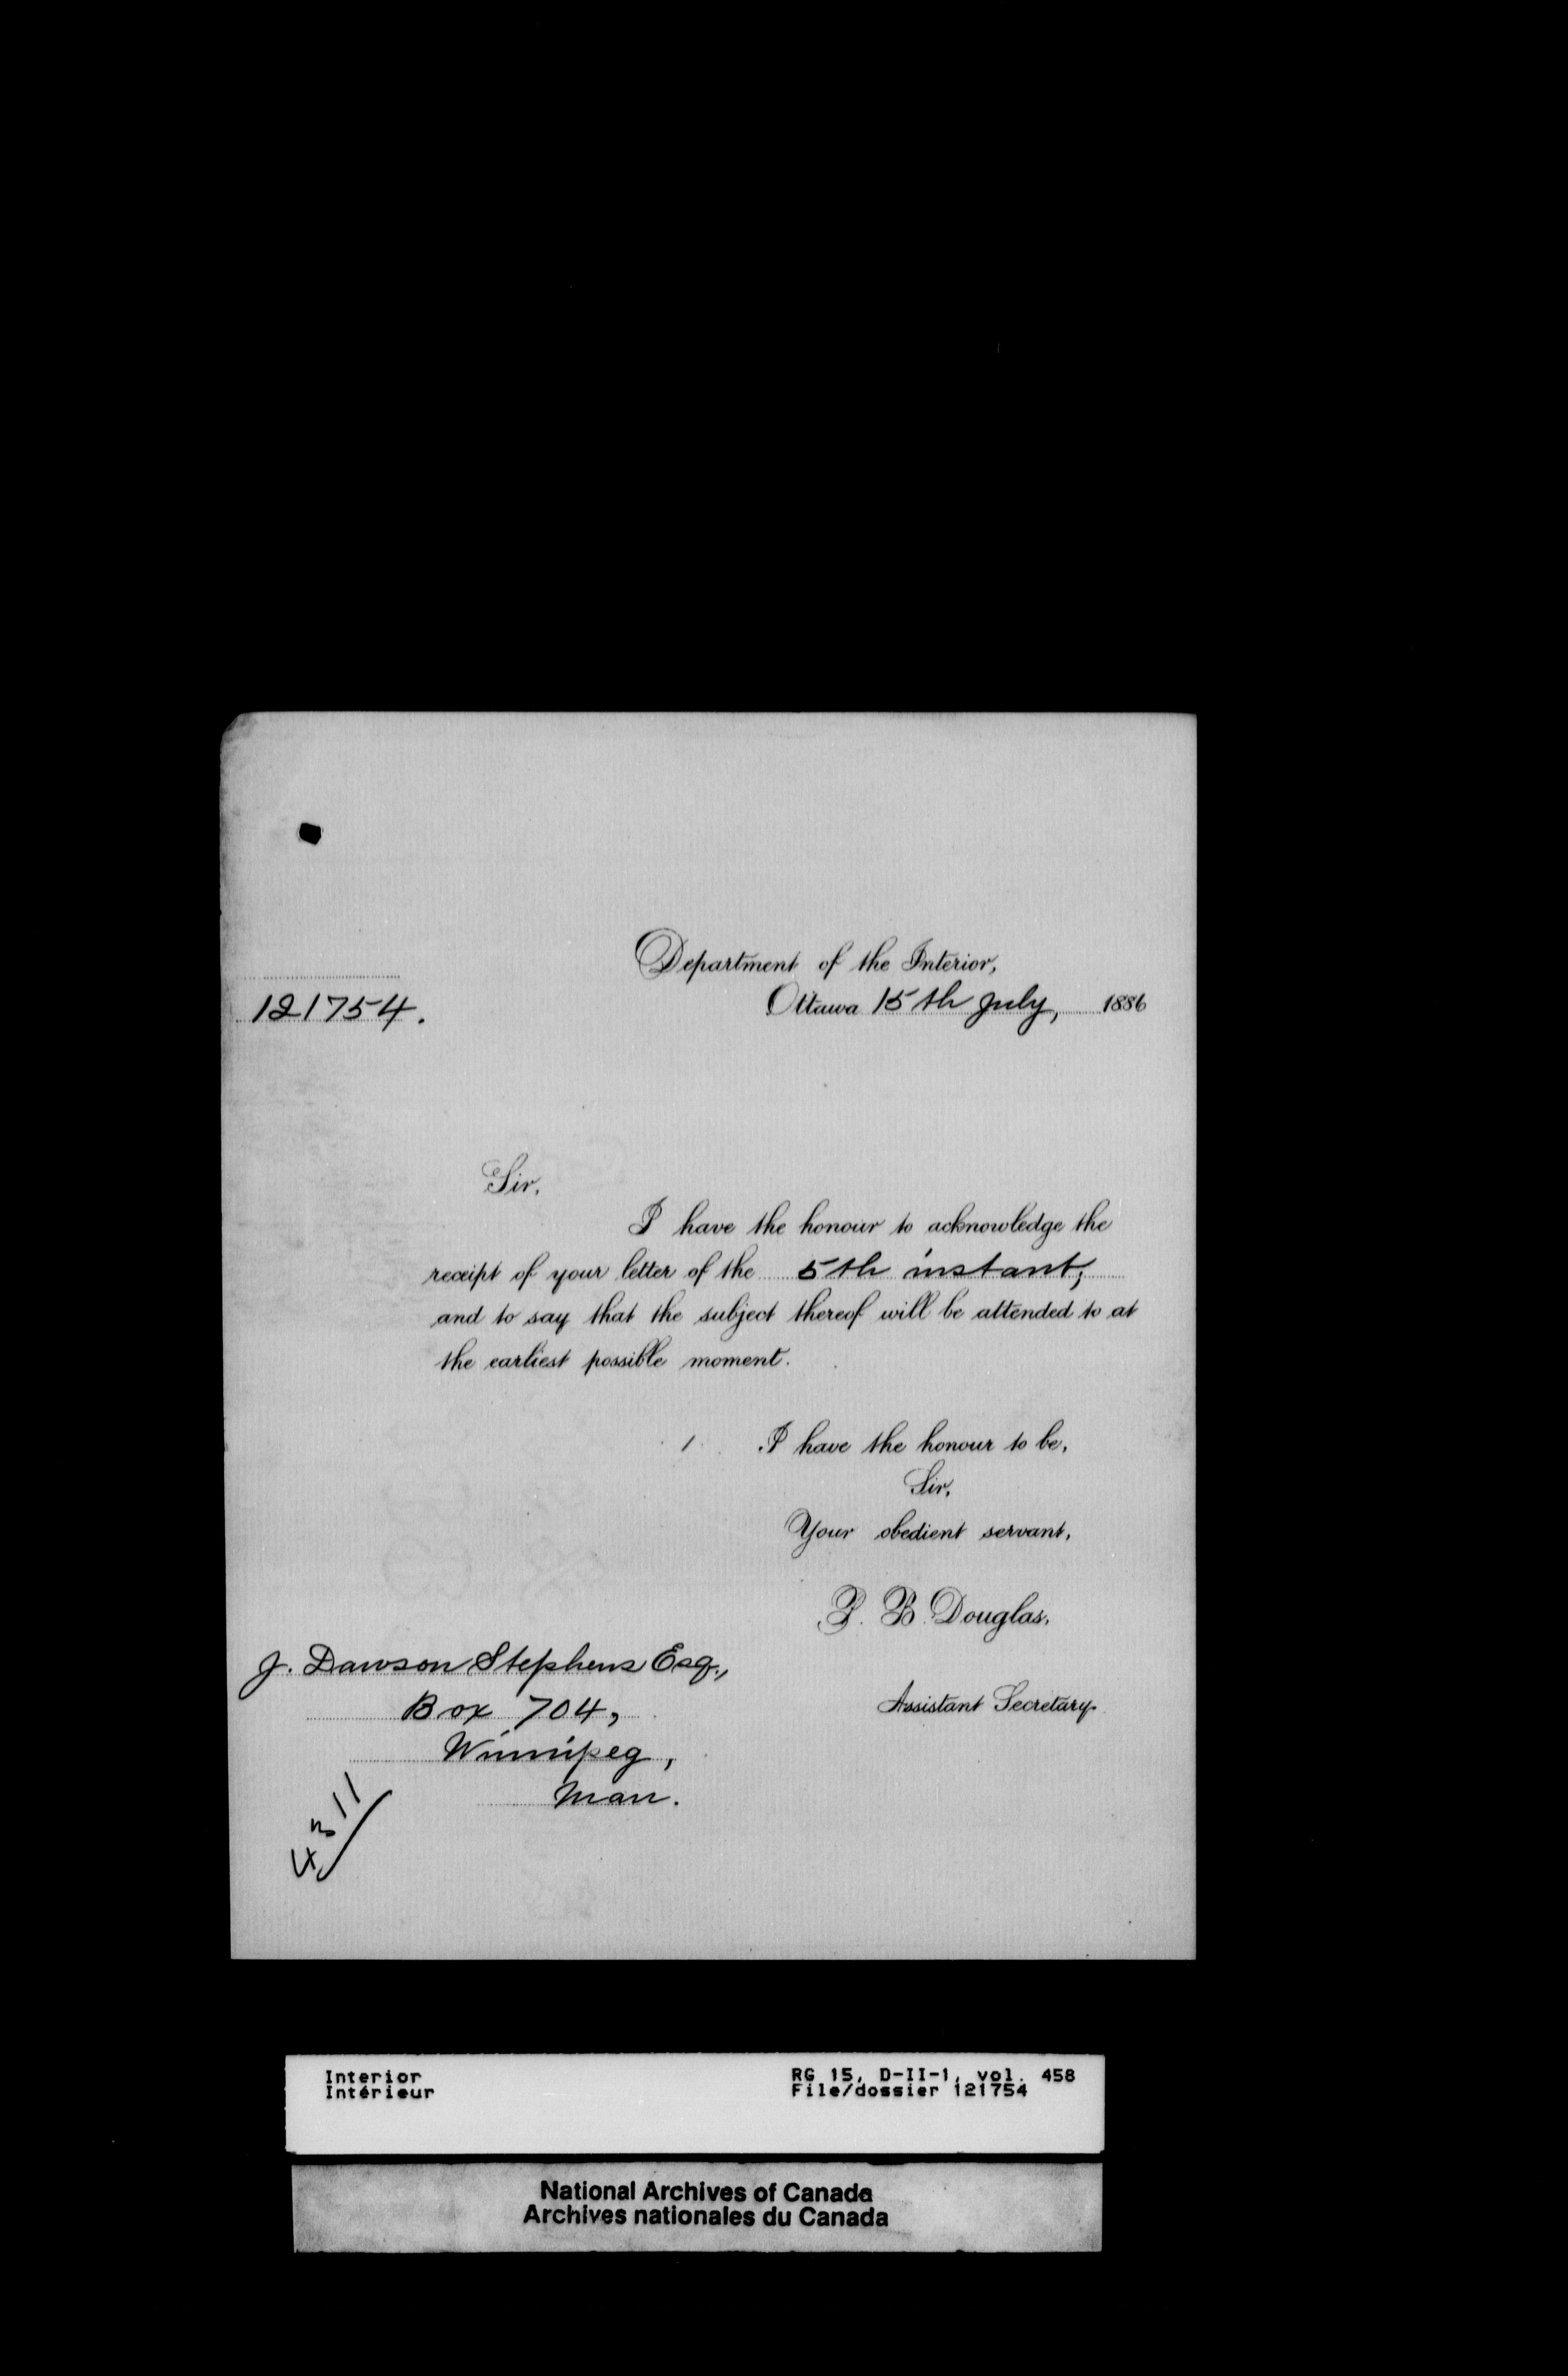 Department of the Interior,
121754.
Ottawa 15th July, 1886
Sir,
I have the honour to acknowledge the
receipt of your letter of the 5th instant,
and to say that the subject thereof will be attended to at
the earliest possible moment.
I have the honour to be,
Sir,
Your obedient servant,
P. B. Douglas,
Assistant Secretary.
J. Dawson Stephens Esq.,
Box 704,
Winnipeg,
Man.
4311
Interior
Intérieur
RG 15, D-II-1, vol. 458
File/dossier 121754
National Archives of Canada
Archives nationales du Canada